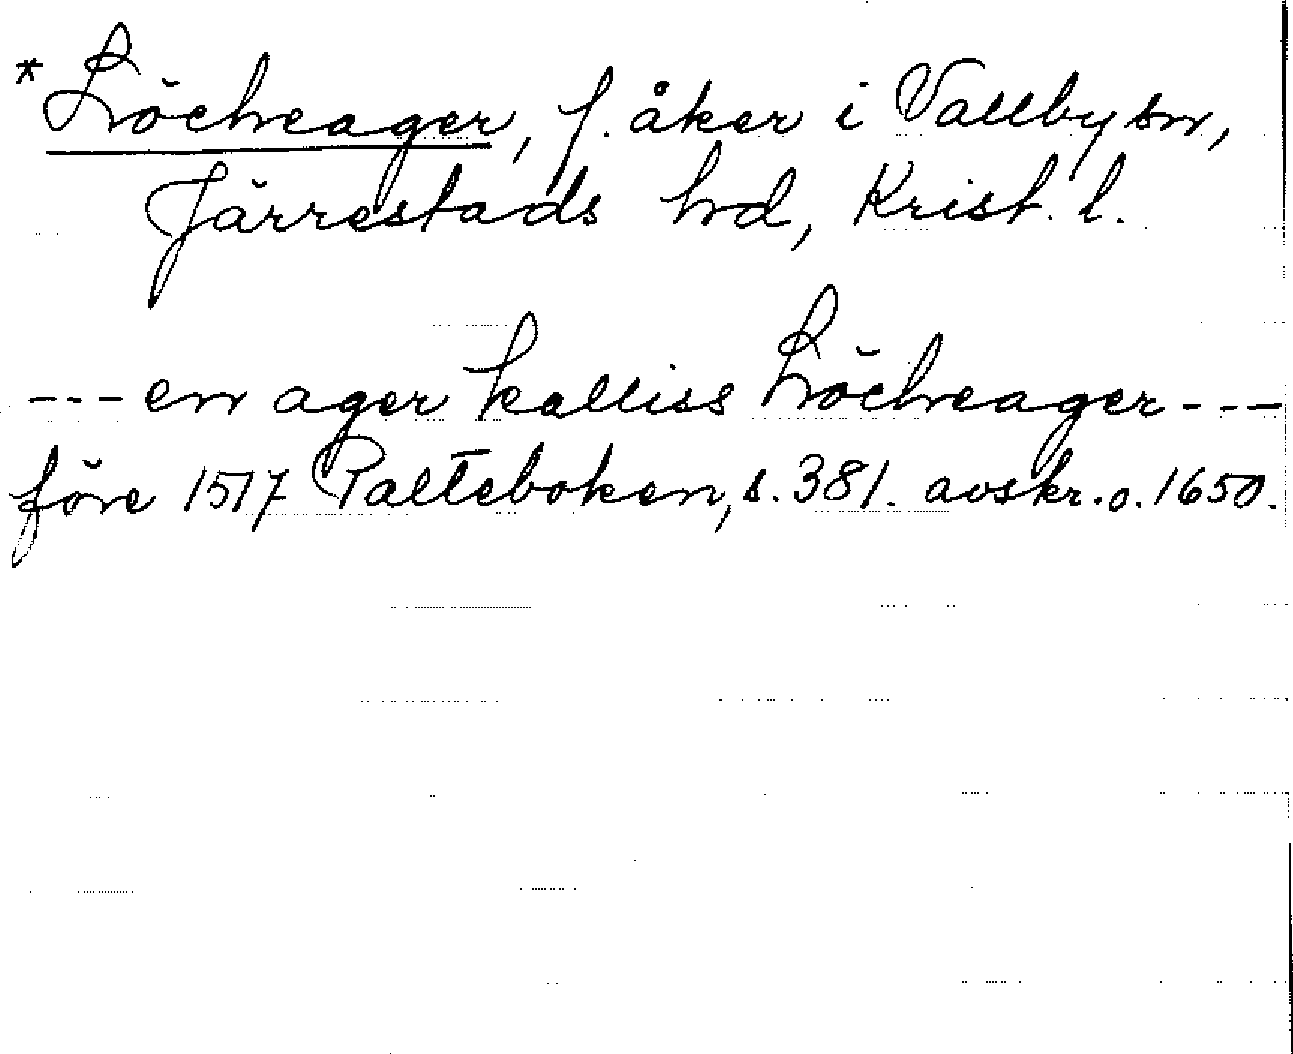 *Löcheager, f. åker i Vallby sn,
Järrestads hd, Krist. l.
--- en ager kalliss Löcheager ---
före 1517 Palteboken, s. 381. avskr. o. 1650.